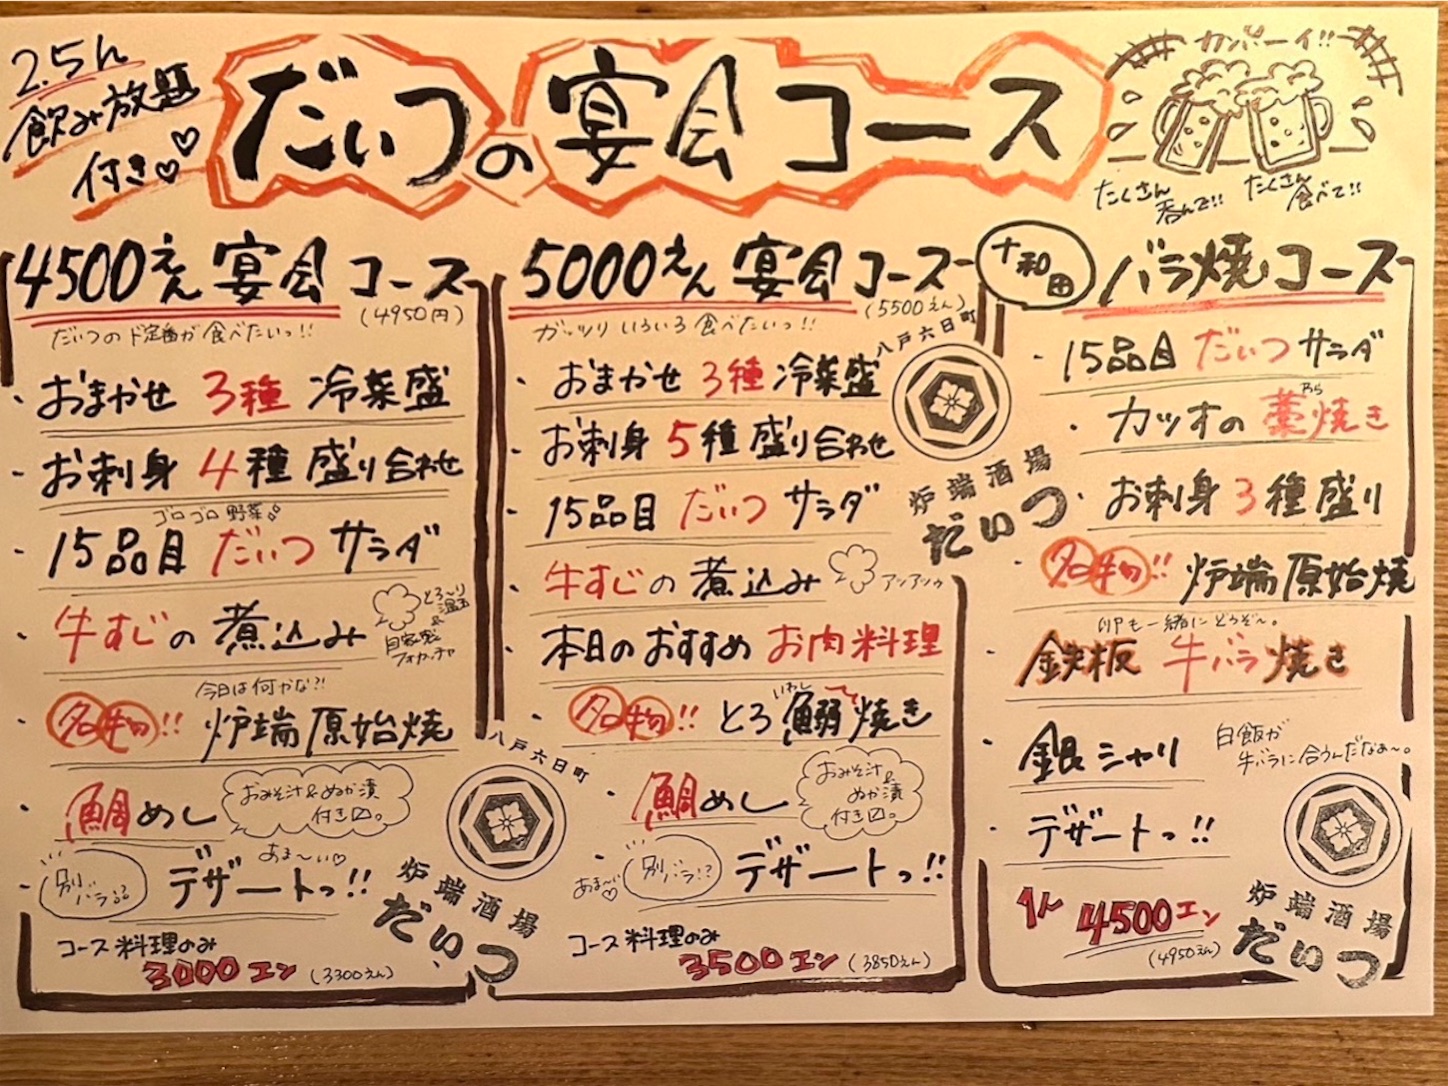 2.5h
飲み放題
付き♡♡
だいつの宴会コース
カンパーイ!!
たくさん呑んで!! たくさん食べて!!
4500えん宴会コース
(4950円)
だいつのド定番が食べたいっ!!
・おまかせ3種冷菜盛
・お刺身4種盛り合わせ
ゴロゴロ野菜
・15品目だいつサラダ
・牛すじの煮込み
とろ〜り温玉&自家製フォカッチャ
今日は何かな?!
・名物!! 炉端原始焼
・鯛めし
おみそ汁&ぬか漬付き
別バラ
・デザートっ!!
あま〜い♡
コース料理のみ
3000エン(3300えん)
八戸六日町
炉端酒場
だいつ
5000えん宴会コース
(5500えん)
ガッツリいろいろ食べたいっ!!
・おまかせ3種冷菜盛
・お刺身5種盛り合わせ
・15品目だいつサラダ
・牛すじの煮込み
アツアツゥ
・本日のおすすめお肉料理
いわし
・名物!! とろ鰯焼き
・鯛めし
おみそ汁&ぬか漬付き
別バラ!?
・デザートっ!!
あま〜い♡
コース料理のみ
3500エン(3850えん)
八戸六日町
炉端酒場
だいつ
十和田バラ焼コース
・15品目だいつサラダ
わら
・カツオの藁焼き
・お刺身3種盛り
・名物!! 炉端原始焼
卵も一緒にどうぞ〜。
・鉄板牛バラ焼き
・銀シャリ
白飯が牛バラに合うんだなぁ〜。
・デザートっ!!
1人4500エン
(4950えん)
炉端酒場
だいつ